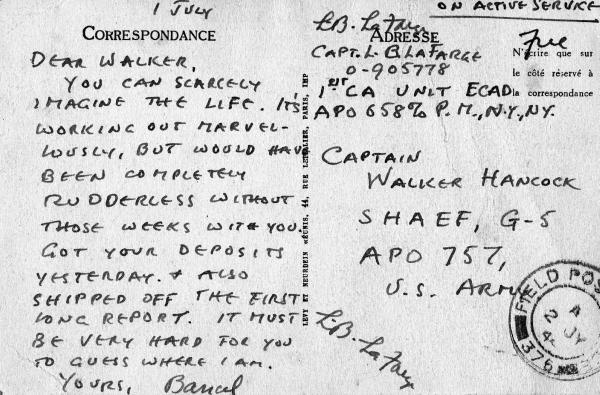 1 JULY
CORRESPONDANCE
DEAR WALKER,
YOU CAN SCARCELY
IMAGINE THE LIFE. IT'S
WORKING OUT MARVEL-
LOUSLY, BUT WOULD HAVE
BEEN COMPLETELY
RUDDERLESS WITHOUT
THOSE WEEKS WITH YOU.
GOT YOUR DEPOSITS
YESTERDAY. & ALSO
SHIPPED OFF THE FIRST
LONG REPORT. IT MUST
BE VERY HARD FOR YOU
TO GUESS WHERE I AM.
YOURS, Bancel
LEVY ET NEURDEIN RÉUNIS, 44, RUE LETELLIER, PARIS, IMP
ON ACTIVE SERVICE
L.B. LaFarge
ADRESSE
Free
CAPT. L B LAFARGE
O-905778
1ST CA UNIT ECAD
APO 658 % P.M., N.Y., N.Y.
N'écrire que sur
le côté réservé à
la correspondance
CAPTAIN
WALKER HANCOCK
SHAEF, G-5
APO 757,
U.S. ARMY
L.B. LaFarge
FIELD POS
2 JY 4
376